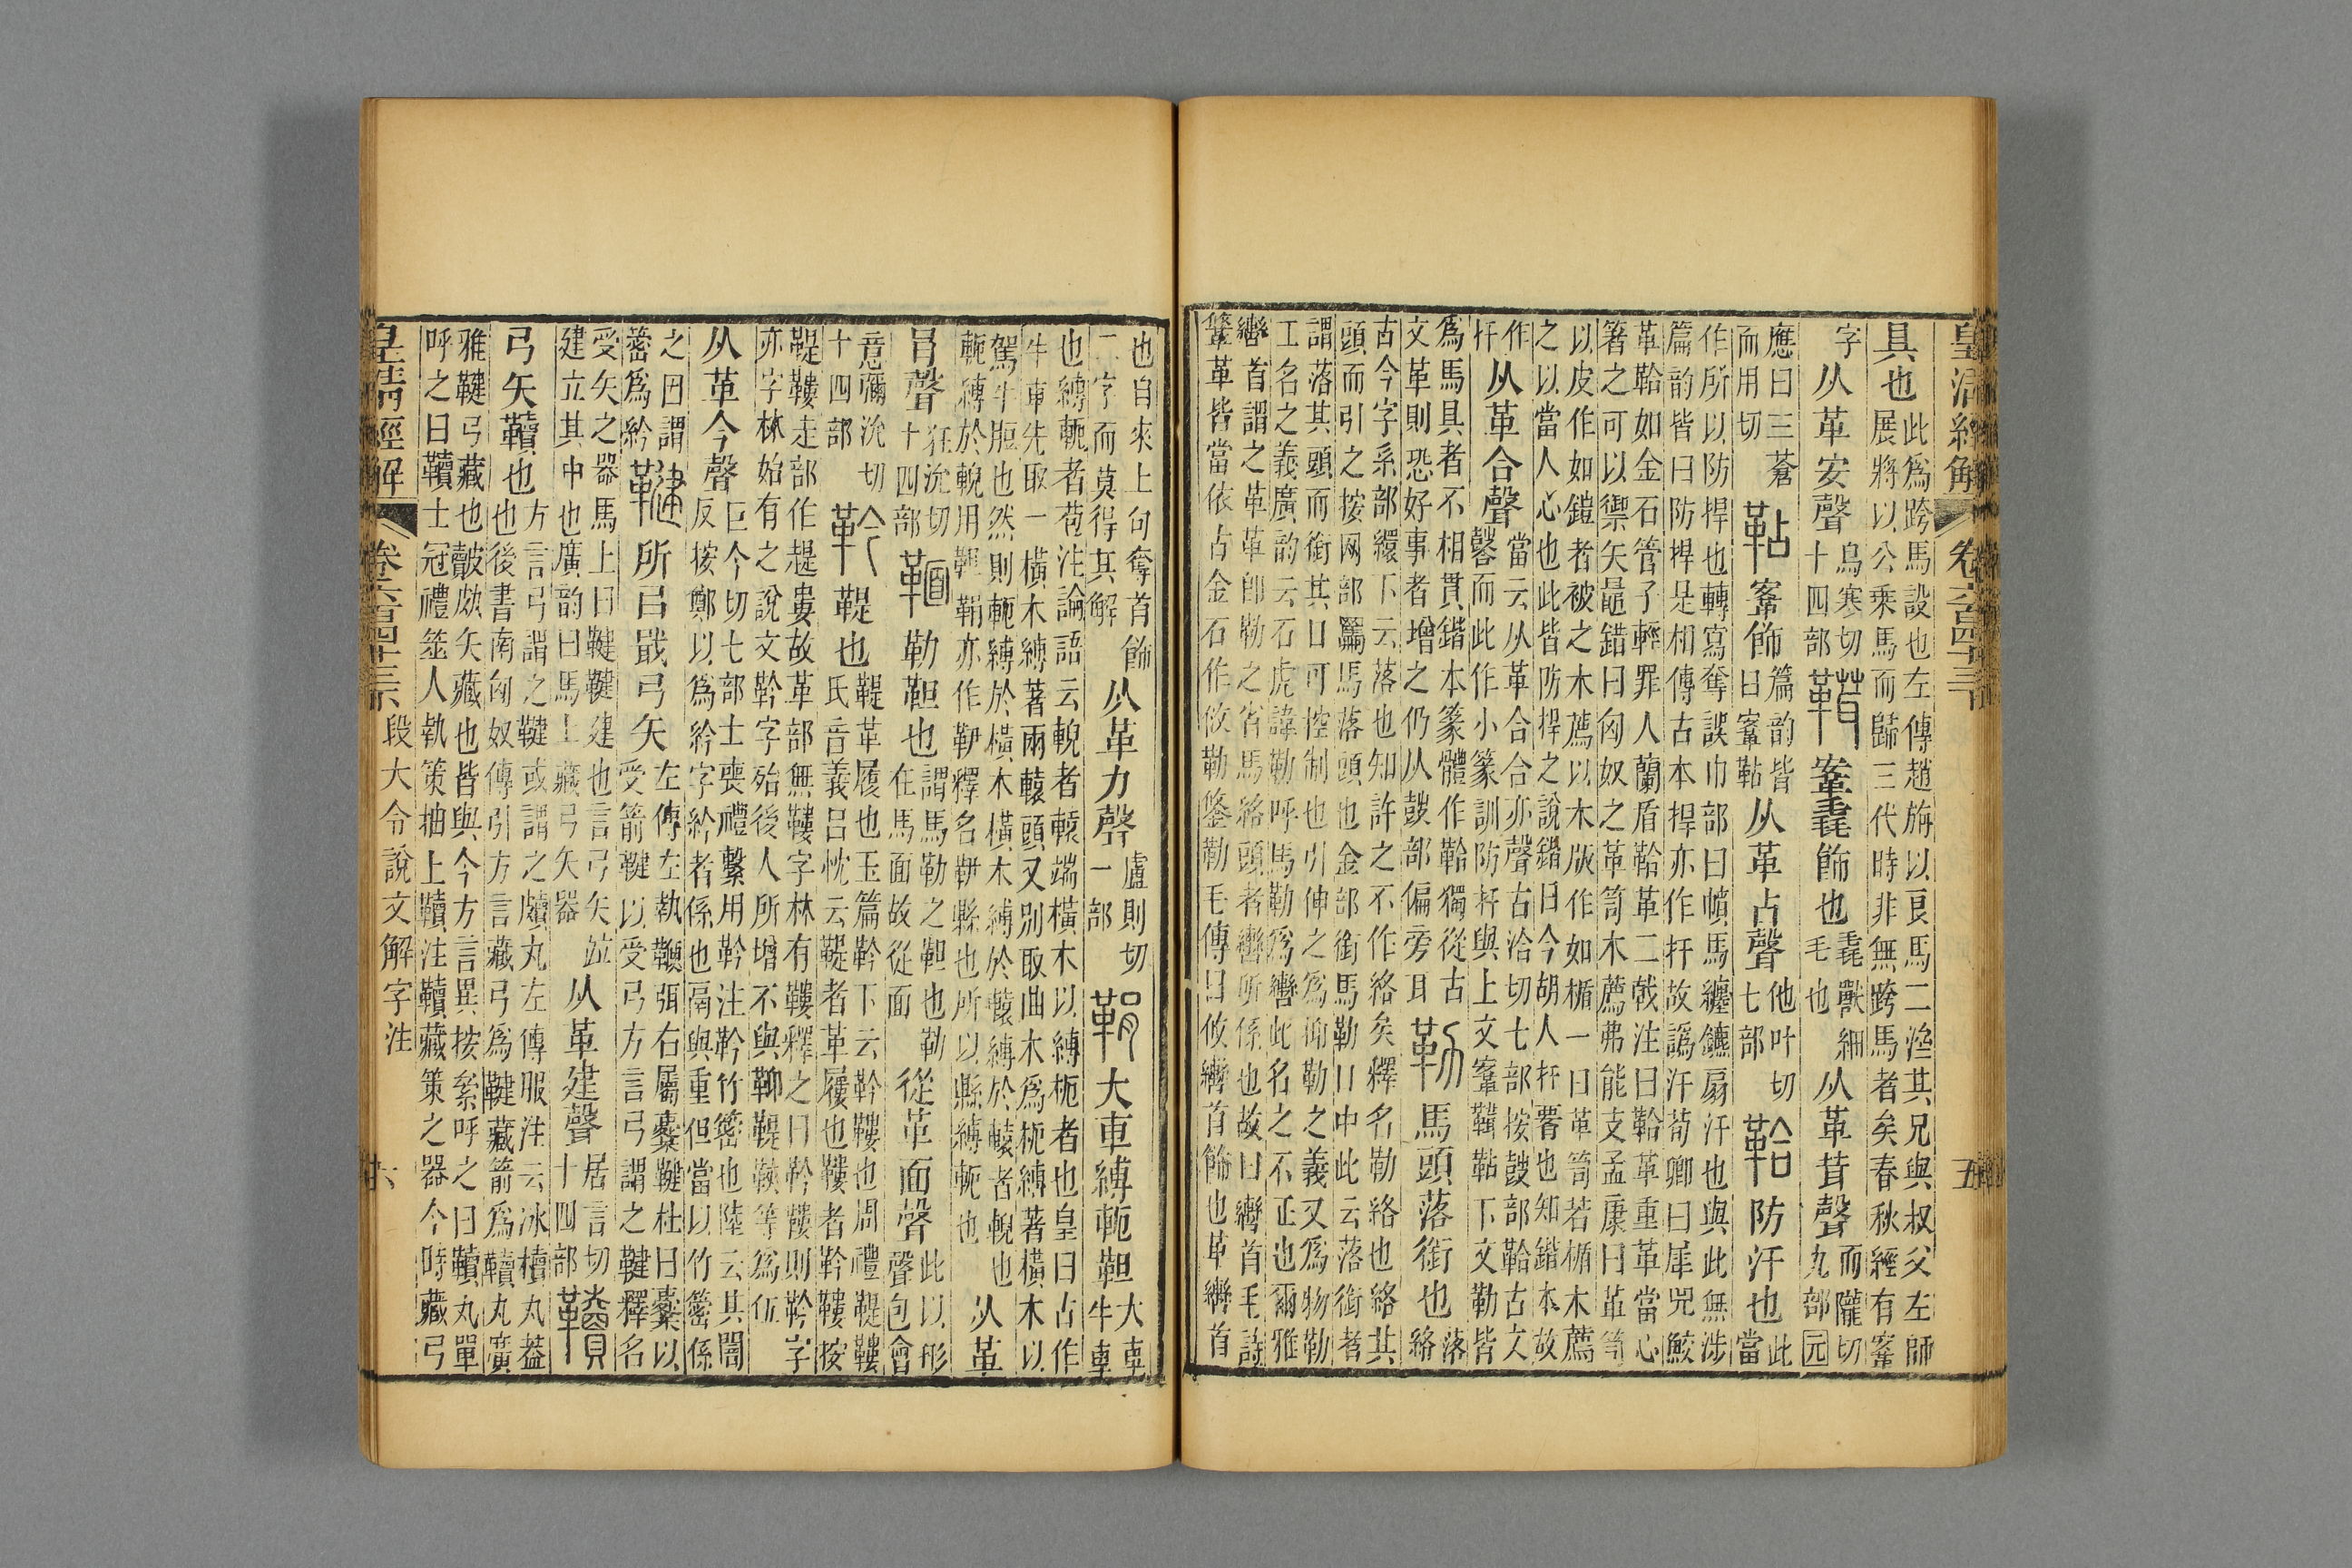 皇清經解 卷六百四十三下 五
具也此爲跨馬設也左傳趙旃以良馬二濟其兄與叔父左師展將以公乘馬而歸三代時非無跨馬者矣春秋經有鞌
字从革安聲烏寒切十四部鞊鞌毳飾也毳獸細毛也从革茸聲而隴切九部
應曰三蒼而用切鞊鞌飾篇韵皆曰鞌鞊从革占聲他叶切七部鞈防汗也此當
作所以防捍也轉寫奪誤巾部曰幩馬纏鑣扇汗也與此無涉篇韵皆曰防捍是相傳古本捍亦作扞故譌汗荀卿曰犀兕鮫
革鞈如金石管子輕罪人蘭盾鞈革二戟注曰鞈革重革當心著之可以禦矢鼂錯曰匈奴之革笥木薦弗能支孟康曰革笥
以皮作如鎧者被之木薦以木版作如楯一曰革笥若楯木薦之以當人心也此皆防捍之說鍇曰今胡人扞䩬也知鍇本故
作扞从革合聲當云从革合合亦聲古洽切七部按鼓部鞈古文鼛而此作小篆訓防扞與上文鞌鞧鞊下文勒皆
爲馬具者不相貫鍇本篆體作鞈獨從古文革則恐好事者增之仍从鼓部偏旁耳勒馬頭落銜也落絡
古今字糸部繯下云落也知許之不作絡矣釋名勒絡也絡其頭而引之按网部䯂馬落頭也金部銜馬勒口中此云落銜者
謂落其頭而銜其口可控制也引伸之爲抑勒之義又爲物勒工名之義廣韵云石虎諱勒呼馬勒爲轡此名之不正也爾雅
轡首謂之革革卽勒之省馬絡頭者轡所係也故曰轡首毛詩鞗革皆當依古金石作攸勒鋚勒毛傳曰攸轡首飾也革轡首
也自來上句奪首飾二字而莫得其解从革力聲盧則切一部鞙大車縛軶靼大車牛車
也縛軶者苞注論語云輗者轅端橫木以縛枙者也皇曰古作牛車先取一橫木縛著兩轅頭又別取曲木爲枙縛著橫木以
駕牛脰也然則軶縛於橫木橫木縛於轅縛於轅者輗也軶縛於輗用鞙鞙亦作䩙釋名䩙縣也所以縣縛軶也从革
肙聲狂沇切十四部䩞勒靼也謂馬勒之靼也勒在馬面故從面從革面聲此以形聲包會
意彌沇切十四部䩂鞮也鞮革履也玉篇䩂下云䩂鞻也周禮鞮鞻氏音義呂忱云鞮者革履也鞻者䩂鞻按
鞮鞻走部作趧婁故革部無鞻字林有鞻釋之曰䩂䩂鞻則䩂字亦字林始有之說文䩂字殆後人所增不與鞮鞅等爲伍
从革今聲巨今切七部士喪禮繫用䩂注䩂竹𥳍也陸云其闇反按鄭以爲紟字紟者係也鬲與重但當以竹𥳍係
之因謂𥳍爲紟鞬所㠯戢弓矢左傳左執鞭弭右屬櫜鞬杜曰櫜以受箭鞬以受弓方言弓謂之鞬釋名
受矢之器馬上曰鞬鞬建也言弓矢竝建立其中也廣韵曰馬上藏弓矢器从革建聲居言切十四部韇
弓矢韇也方言弓謂之鞬或謂之皾丸左傳服注云冰櫝丸葢也後書南匈奴傳引方言藏弓爲鞬藏箭爲韇丸廣
雅鞬弓藏也皾𤿺矢藏也皆與今方言異按絫呼之曰韇丸單呼之曰韇士冠禮筮人執策抽上韇注韇藏策之器今時藏弓
皇清經解 卷六百四十三下 段大令說文解字注 六